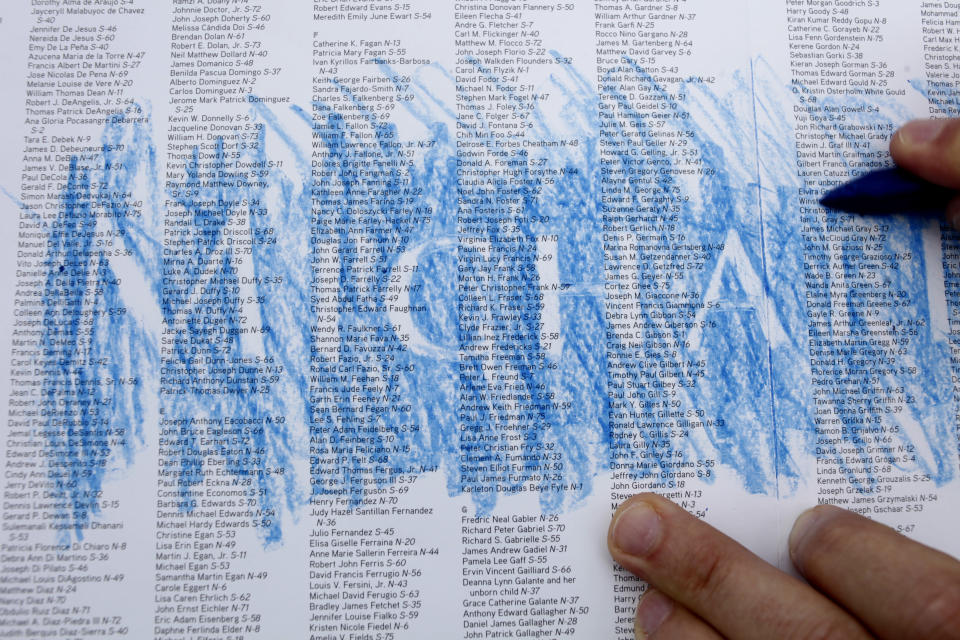 Dorothy Alma de Araujo S-4
Jayceryll Malabuyoc de Chavez
S-40
Jennifer De Jesus S-46
Nereida De Jesus S-60
Emy De La Peña S-40
Azucena Maria de la Torre N-47
Francis Albert De Martini S-27
Jose Nicolas De Pena N-69
Melanie Louise de Vere N-20
William Thomas Dean N-11
Robert J. DeAngelis, Jr. S-64
Thomas Patrick DeAngelis S-16
Ana Gloria Pocasangre Debarrera
S-2
Tara E. Debek N-9
James D. Debeuneure S-70
Anna M. DeBin N-47
James V. DeBlase, Jr. N-51
Paul DeCola N-36
Gerald F. DeConto S-72
Simon Marash Dedvukaj N-64
Jason Christopher DeFazio N-40
Laura Lee Defazio Morabito N-75
David A. DeFeo S-49
Monique Effie DeJesus N-29
Manuel Del Valle, Jr. S-16
Donald Arthur Delapenha S-36
Vito Joseph Deleo N-63
Danielle Anne Delie N-3
Joseph A. Della Pietra N-40
Andrea DellaBella S-63
Palmina DelliGatti N-4
Colleen Ann Deloughery S-59
Joseph DeLuca S-68
Anthony Demas S-55
Martin N. DeMeo S-9
Francis Deming N-17
Carol Keyes Demitz S-42
Kevin Dennis
Thomas Francis Dennis, Sr. N-56
Jean C. DePalma N-12
Robert John Deraney N-21
Michael DeRienzo N-53
David Paul DeRubbio S-14
Jemal Legesse DeSantis N-58
Christian Louis DeSimone N-4
Edward DeSimone III N-53
Andrew J. Desperito S-18
Cindy Ann Deuel N-59
Jerry DeVito N-60
Robert P. Devitt, Jr. N-32
Dennis Lawrence Devlin S-15
Gerard P. Dewan S-8
Sulemanali Kassamali Dhanani
S-53
Patricia Florence Di Chiaro N-8
Debra Ann Di Martino S-36
Joseph Di Pilato S-46
Michael Louis DiAgostino N-49
Matthew Diaz N-24
Nancy Diaz N-70
Obdulio Ruiz Diaz N-71
Michael A. Diaz-Piedra III N-72
Judith Berquis Diaz-Sierra S-40
Johnnie Doctor, Jr. S-72
John Joseph Doherty S-60
Melissa Cándida Doi S-46
Brendan Dolan N-61
Robert E. Dolan, Jr. S-73
Neil Matthew Dollard N-40
James Domanico S-48
Benilda Pascua Domingo S-37
Alberto Dominguez N-2
Carlos Dominguez N-3
Jerome Mark Patrick Dominguez
S-25
Kevin W. Donnelly S-6
Jacqueline Donovan S-33
William H. Donovan S-71
Stephen Scott Dorf S-32
Thomas Dowd N-55
Kevin Christopher Dowdell S-11
Mary Yolanda Dowling S-59
Raymond Matthew Downey,
Sr. S-9
Frank Joseph Doyle S-34
Joseph Michael Doyle N-33
Randall L. Drake S-38
Patrick Joseph Driscoll S-68
Stephen Patrick Driscoll S-24
Charles A. Droz III S-70
Mirna A. Duarte N-16
Luke A. Dudek N-70
Christopher Michael Duffy S-35
Gerard J. Duffy S-10
Michael Joseph Duffy S-35
Thomas W. Duffy N-4
Antoinette Duger N-72
Jackie Sayegh Duggan N-69
Sareve Dukat S-48
Patrick Dunn S-72
Felicia Gail Dunn-Jones S-66
Christopher Joseph Dunne N-13
Richard Anthony Dunstan S-59
Patrick Thomas Dwyer N-25
E
Joseph Anthony Eacobacci N-50
John Bruce Eagleson S-66
Edward T. Earhart S-72
Robert Douglas Eaton N-46
Dean Phillip Eberling S-33
Margaret Ruth Echtermann S-48
Paul Robert Eckna N-28
Constantine Economos S-51
Barbara G. Edwards S-70
Dennis Michael Edwards S-54
Michael Hardy Edwards S-50
Christine Egan S-53
Lisa Erin Egan N-49
Martin J. Egan, Jr. S-11
Michael Egan S-53
Samantha Martin Egan N-49
Carole Eggert N-6
Lisa Caren Ehrlich S-62
John Ernst Eichler N-71
Eric Adam Eisenberg S-58
Daphne Ferlinda Elder N-8
Robert Edward Evans S-15
Meredith Emily June Ewart S-54
F
Catherine K. Fagan N-13
Patricia Mary Fagan S-55
Ivan Kyrillos Fairbanks-Barbosa
N-43
Keith George Fairben S-26
Sandra Fajardo-Smith N-7
Charles S. Falkenberg S-69
Dana Falkenberg S-69
Zoe Falkenberg S-69
Jamie L. Fallon S-72
William F. Fallon N-65
William Lawrence Fallon, Jr. N-37
Anthony J. Fallone, Jr. N-51
Dolores Brigitte Fanelli N-5
Robert John Fangman S-2
John Joseph Fanning S-11
Kathleen Anne Faragher N-22
Thomas James Farino S-19
Nancy C. Doloszycki Farley N-18
Paige Marie Farley-Hackel N-75
Elizabeth Ann Farmer N-47
Douglas Jon Farnum N-10
John Gerard Farrell N-53
John W. Farrell S-51
Terrence Patrick Farrell S-11
Joseph D. Farrelly S-22
Thomas Patrick Farrelly N-47
Syed Abdul Fatha S-49
Christopher Edward Faughnan
N-54
Wendy R. Faulkner S-61
Shannon Marie Fava N-35
Bernard D. Favuzza N-42
Robert Fazio, Jr. S-24
Ronald Carl Fazio, Sr. S-60
William M. Feehan S-18
Francis Jude Feely N-7
Garth Erin Feeney N-21
Sean Bernard Fegan N-60
Lee S. Fehling S-7
Peter Adam Feidelberg S-54
Alan D. Feinberg S-10
Rosa Maria Feliciano N-15
Edward P. Felt S-68
Edward Thomas Fergus, Jr. N-41
George J. Ferguson III S-37
J. Joseph Ferguson S-69
Henry Fernandez N-70
Judy Hazel Santillan Fernandez
N-36
Julio Fernandez S-45
Elisa Giselle Ferraina N-20
Anne Marie Sallerin Ferreira N-44
Robert John Ferris S-60
David Francis Ferrugio N-56
Louis V. Fersini, Jr. N-43
Michael David Ferugio S-63
Bradley James Fetchet S-35
Jennifer Louise Fialko S-59
Kristen Nicole Fiedel N-6
Amelia V. Fields S-75
Christina Donovan Flannery S-50
Eileen Flecha S-41
Andre G. Fletcher S-7
Carl M. Flickinger N-40
Matthew M. Flocco S-72
John Joseph Florio S-22
Joseph Walkden Flounders S-32
Carol Ann Flyzik N-1
David Fodor S-41
Michael N. Fodor S-11
Stephen Mark Fogel N-47
Thomas J. Foley S-16
Jane C. Folger S-67
David J. Fontana S-6
Chih Min Foo S-44
Delrose E. Forbes Cheatham N-48
Godwin Forde S-46
Donald A. Foreman S-27
Christopher Hugh Forsythe N-44
Claudia Alicia Foster N-56
Noel John Foster S-62
Sandra N. Foster S-71
Ana Fosteris S-61
Robert Joseph Foti S-20
Jeffrey Fox S-35
Virginia Elizabeth Fox N-10
Pauline Francis N-24
Virgin Lucy Francis N-69
Gary Jay Frank S-58
Morton H. Frank N-26
Peter Christopher Frank N-57
Colleen L. Fraser S-68
Richard K. Fraser S-59
Kevin J. Frawley S-33
Clyde Frazier, Jr. S-27
Lillian Inez Frederick S-58
Andrew Fredericks S-21
Tamitha Freeman S-58
Brett Owen Freiman S-46
Peter L. Freund S-7
Arlene Eva Fried N-46
Alan W. Friedlander S-58
Andrew Keith Friedman N-59
Paul J. Friedman N-75
Gregg J. Froehner S-29
Lisa Anne Frost S-3
Peter Christian Fry S-32
Clement A. Fumando N-33
Steven Elliot Furman N-50
Paul James Furmato N-26
Karleton Douglas Beye Fyfe N-1
G
Fredric Neal Gabler N-26
Richard Peter Gabriel S-70
Richard S. Gabrielle S-55
James Andrew Gadiel N-31
Pamela Lee Gaff S-55
Ervin Vincent Gailliard S-66
Deanna Lynn Galante and her
unborn child N-37
Grace Catherine Galante N-37
Anthony Edward Gallagher N-50
Daniel James Gallagher N-28
John Patrick Gallagher N-49
Thomas A. Gardner S-8
William Arthur Gardner N-37
Frank Garfi N-25
Rocco Nino Gargano N-28
James M. Gartenberg N-64
Matthew David Garvey S-6
Bruce Gary S-15
Boyd Alan Gatton S-43
Donald Richard Gavagan, Jr. N-42
Peter Alan Gay N-2
Terence D. Gazzani N-51
Gary Paul Geidel S-10
Paul Hamilton Geier N-51
Julie M. Geis S-57
Peter Gerard Gelinas S-56
Steven Paul Geller N-29
Howard G. Gelling, Jr. S-51
Peter Victor Genco, Jr. N-41
Steven Gregory Genovese N-26
Alayne Gentul S-42
Linda M. George N-75
Edward F. Geraghty S-9
Suzanne Geraty N-35
Ralph Gerhardt N-45
Robert Gerlich N-18
Denis P. Germain S-16
Marina Romanovna Gertsberg N-48
Susan M. Getzendanner S-40
Lawrence D. Getzfred S-72
James G. Geyer N-55
Cortez Ghee S-75
Joseph M. Giaccone N-36
Vincent Francis Giammona S-6
Debra Lynn Gibbon S-54
James Andrew Giberson S-16
Brenda C. Gibson S-1
Craig Neil Gibson N-16
Ronnie E. Gies S-8
Andrew Clive Gilbert N-45
Timothy Paul Gilbert N-45
Paul Stuart Gilbey S-32
Paul John Gill S-9
Mark Y. Gilles N-50
Evan Hunter Gillette S-50
Ronald Lawrence Gilligan N-33
Rodney C. Gillis S-24
Laura Gilly N-35
John F. Ginley S-16
Donna Marie Giordano S-55
Jeffrey John Giordano S-8
John Giordano S-18
Peter Morgan Goodrich S-3
Harry Goody S-48
Kiran Kumar Reddy Gopu N-8
Catherine C. Gorayeb N-22
Lisa Fenn Gordenstein N-75
Kerene Gordon N-24
Sebastian Gorki S-38
Kieran Joseph Gorman S-36
Thomas Edward Gorman S-28
Michael Edward Gould N-25
O. Kristin Osterholm White Gould
S-68
Douglas Alan Gowell S-4
Yuji Goya S-45
Jon Richard Grabowski N-15
Christopher Michael Grady
Edwin J. Graf III N-41
David Martin Graifman S-34
Gilbert Franco Granados S-
Lauren Catuzzi
her unborn
Elvira
Ian J. Gray S-71
James Michael Gray S-13
Tara McCloud Gray N-72
John M. Grazioso N-25
Timothy George Grazioso N-25
Derrick Auther Green S-42
Wade B. Green N-23
Wanda Anita Green S-67
Elaine Myra Greenberg N-20
Donald Freeman Greene S-67
Gayle R. Greene N-9
James Arthur Greenleaf, Jr. N-62
Eileen Marsha Greenstein S-56
Elizabeth Martin Gregg N-59
Denise Marie Gregory N-63
Donald H. Gregory N-39
Florence Moran Gregory S-58
Pedro Grehan N-51
John Michael Griffin N-63
Tawanna Sherry Griffin N-23
Joan Donna Griffith N-39
Warren Grifka N-15
Ramon B. Grijalvo N-65
Joseph F. Grillo N-66
David Joseph Grimner N-12
Francis Edward Grogan S-4
Linda Gronlund S-68
Kenneth George Grouzalis S-25
Joseph Grzelak S-19
Matthew James Grzymalski N-54